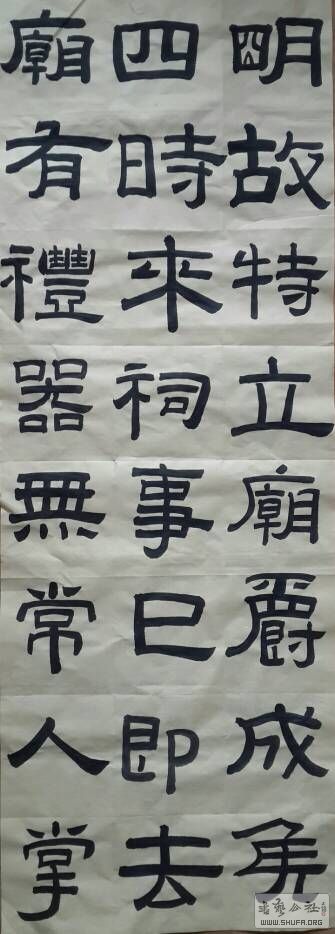 朙故特立廟爵成矦
四時來祠事已即去
廟有禮器無常人掌
书艺公社
WWW.SHUFA.ORG